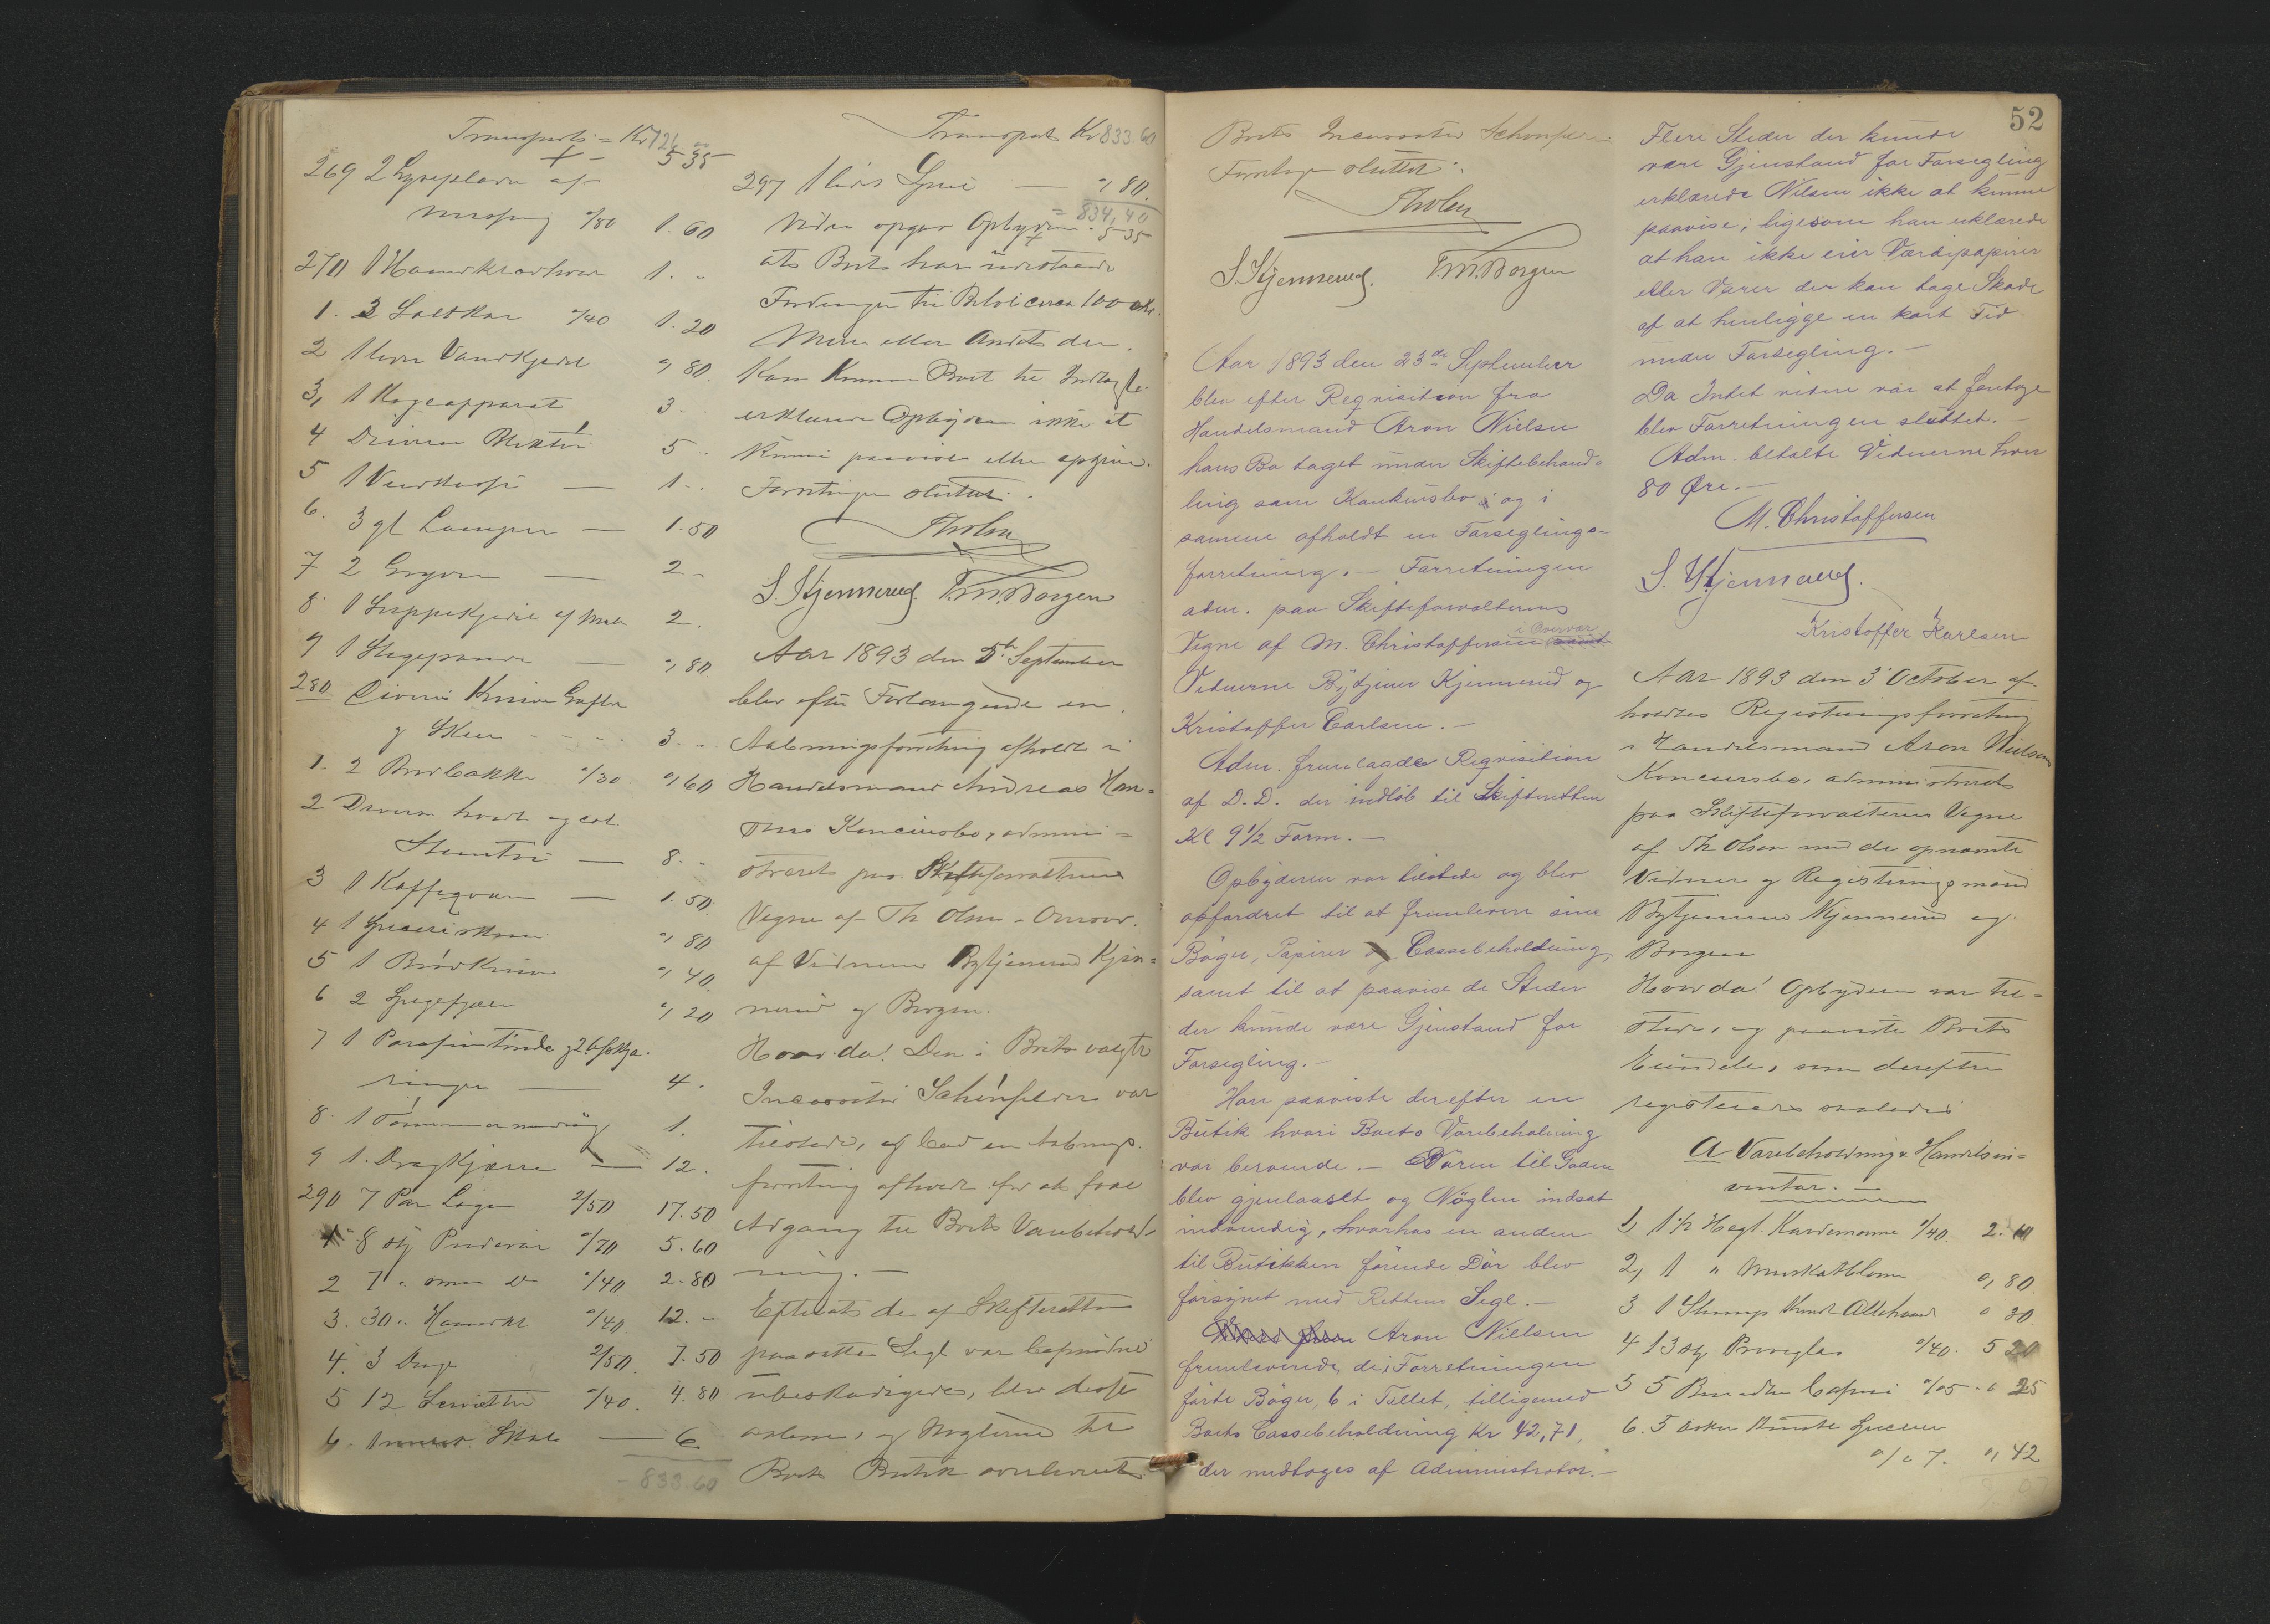 Transport = Kr 726
+ 5 35
269 2 Lyseplader af
messing 0/80 1.60
270 1 Haandklædhver 1. "
1. 3 Saltkar 0/40 1.20
2 1 liden Vandkjedel 0,80.
3, 1 Kogeapparat 3 "
4 Diverse 5 "
5 1 1 "
6. 3 gl Lamper — 1.50
7 2 Gryder — 2 "
8 1 Suppekjedel af 2.
9 1 Stegepande — 0,80
280 Diverse Knive Gafler
og Skeer 3. "
1. 2 Brødbakker 0/30 0,60
2 Diverse hvidt og col.
Stentøi — 8. "
3 1 Kaffeqværn — 1.50
4 1 0,80
5 1 Brødkniv 0,40
6 2 0,20
7 1 Parafintønde
ringer — 4.
8. 1 1.
9 1. Dragkjærre — 12.
290 7 Par Lagen 2/50 17.50
1 8 stk Pudevar 0/70 5.60
2 7 " smaa Do 0/40 2.80
3. 30 " Haandkl 0/40 12. "
4. 3 Duge 2/50 7.50
5 12 Servietter 0/40 4.80
6. 1 — 6
833.60
Transport Kr 833.60
297 1 liden — 0,80.
= 834,40
Videre opgav Opbyderen 5 35
at Boets har udestaaende
Fordringer til Beløb circa 100 Kr.
Mere eller Andet der
kan komme Boet til Indtægt
erklærede Opbyderen ikke at
kunne paavise eller opgive.
Forretningen sluttet.
Th Olsen
S. Kjennerud. T. M. Borgen
Aar 1893 den 5te September
blev efter Forlangende en
Aabningsforretning afholdt i
Handelsmand Andreas Han=
sens Koncursbo, admini=
streret paa Skifteforvalterens
Vegne af Th Olsen i Overvær
af Vidnerne Bytjenerne Kjen=
nerud og Borgen.
Hvorda! Den i Boet valgte
Incassator Schønfelder var
tilstede, og bad en Aabnings
forretning afholdt for at faae
Adgang til Boets Varebehold=
ning. —
Eftersat de af Skifteretten
paasatte Segl var befundne
ubeskadigede, blev disse
aabnet, og Nøglerne til
Boets Butik overleveret
52
Boets Incassator Schønfelder.
Forretningen sluttet.
Th Olsen
S. Kjennerud. T. M. Borgen
Aar 1893 den 23de September
blev efter Reqvisition fra
Handelsmand Aron Nielsen
hans Bo taget under Skiftebehand=
ling som Konkursbo og i
samme afholdt en Forseglings=
forretning. — Forretningen
adm. paa Skifteforvalterens
i Overvær
Vegne af M. Christoffersen samt
Vidnerne Bytjener Kjennerud og
Kristoffer Carlsen. —
Adm. fremlagde Reqvisition
af D. D. der indløb til Skifteretten
Kl 9½ Form. —
Opbyderen var tilstede og blev
opfordret til at fremlevere sine
Bøger, Papirer og Cassebeholdning,
samt til at paavise de Steder
der kunde være Gjenstand for
Forsegling. —
Han paaviste derefter en
Butik hvori Boets Varebeholdning
var beroende. — Døren til Gaden
blev gjenlaaset og Nøglen indsat
indvendig, hvorhos en anden
til Butikken førende Dør blev
forsynet med Rettens Segl. —
Aron Nielsen
fremleverede de i Forretningen
førte Bøger, 6 i Tallet, tilligemed
Boets Cassebeholdning Kr 42,71,
der medtoges af Administrator. —
Flere Steder der kunde
være Gjenstand for Forsegling
erklærede Nilsen ikke at kunne
paavise; ligesom han erklærede
at han ikke eier Værdipapirer
eller Varer der kan tage Skade
af at henligge en kort Tid
under Forsegling. —
Da Intet videre var at foretage
blev Forretningen sluttet. —
Adm. betalte Vidnerne hver
80 Øre. —
M. Christoffersen
S. Kjennerud.
Kristoffer Karlsen
Aar 1893 den 3 October af=
holdtes Registreringsforretning
i Handelsmand Aron Nielsens
Koncursbo, administreret
paa Skifteforvalterens Vegne
af Th Olsen med de opnævnte
Vidner og Registreringsmænd
Bytjenerne Kjennerud og
Borgen
Hvorda! Opbyderen var til=
stede, og paaviste Boets
Eiendele, som derefter
registreredes saaledes
A Varebeholdning & Handelsin=
ventar. —
1, 1½ Hegt. Kardemomme 1/40 2.10
2, 1 " Muskatblomme 0,80
3 1 Slump stødt Allehaande 0 30
4 13 stk Prøveglas 0/40. 5 20
5 5 0/05 " 0 25
6. 5 æsker
0/07. 0,42